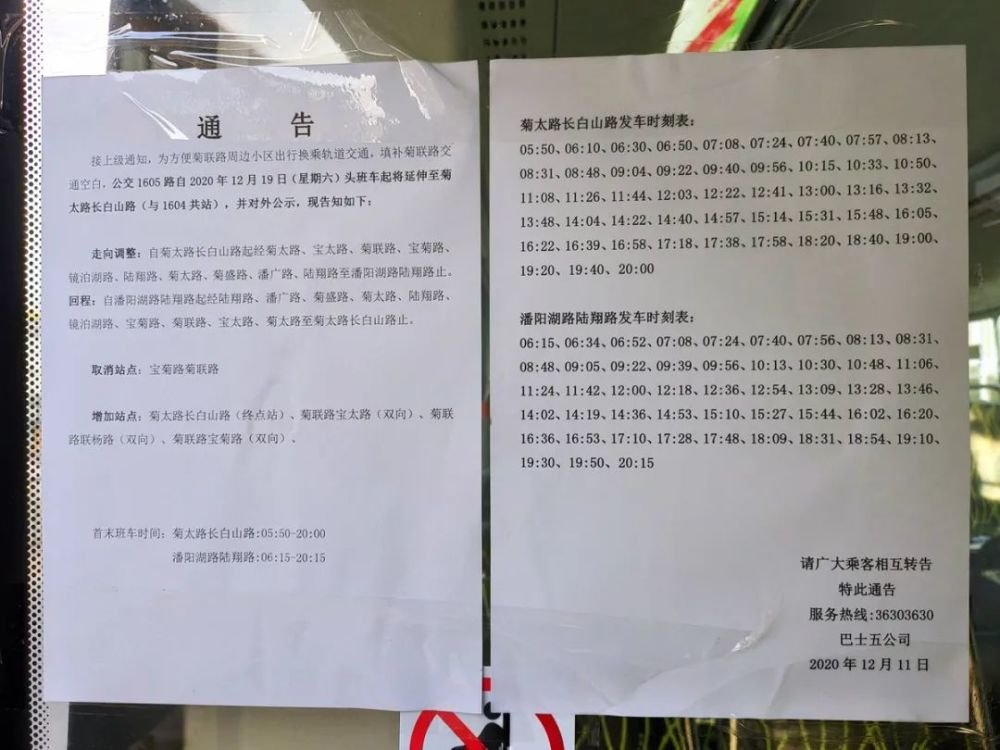 通 告
接上级通知，为方便菊联路周边小区出行换乘轨道交通，填补菊联路交
通空白，公交 1605 路自 2020 年 12 月 19 日（星期六）头班车起将延伸至菊
太路长白山路（与 1604 共站），并对外公示，现告知如下：
走向调整：自菊太路长白山路起经菊太路、宝太路、菊联路、宝菊路、
镜泊湖路、陆翔路、菊太路、菊盛路、潘广路、陆翔路至潘阳湖路陆翔路止。
回程：自潘阳湖路陆翔路起经陆翔路、潘广路、菊盛路、菊太路、陆翔路、
镜泊湖路、宝菊路、菊联路、宝太路、菊太路至菊太路长白山路止。
取消站点：宝菊路菊联路
增加站点：菊太路长白山路（终点站）、菊联路宝太路（双向）、菊联
路联杨路（双向）、菊联路宝菊路（双向）、
首末班车时间：菊太路长白山路:05:50-20:00
潘阳湖路陆翔路:06:15-20:15
菊太路长白山路发车时刻表：
05:50、06:10、06:30、06:50、07:08、07:24、07:40、07:57、08:13、
08:31、08:48、09:04、09:22、09:40、09:56、10:15、10:33、10:50、
11:08、11:26、11:44、12:03、12:22、12:41、13:00、13:16、13:32、
13:48、14:04、14:22、14:40、14:57、15:14、15:31、15:48、16:05、
16:22、16:39、16:58、17:18、17:38、17:58、18:20、18:40、19:00、
19:20、19:40、20:00
潘阳湖路陆翔路发车时刻表：
06:15、06:34、06:52、07:08、07:24、07:40、07:56、08:13、08:31、
08:48、09:05、09:22、09:39、09:56、10:13、10:30、10:48、11:06、
11:24、11:42、12:00、12:18、12:36、12:54、13:09、13:28、13:46、
14:02、14:19、14:36、14:53、15:10、15:27、15:44、16:02、16:20、
16:36、16:53、17:10、17:28、17:48、18:09、18:31、18:54、19:10、
19:30、19:50、20:15
请广大乘客相互转告
特此通告
服务热线:36303630
巴士五公司
2020 年 12 月 11 日